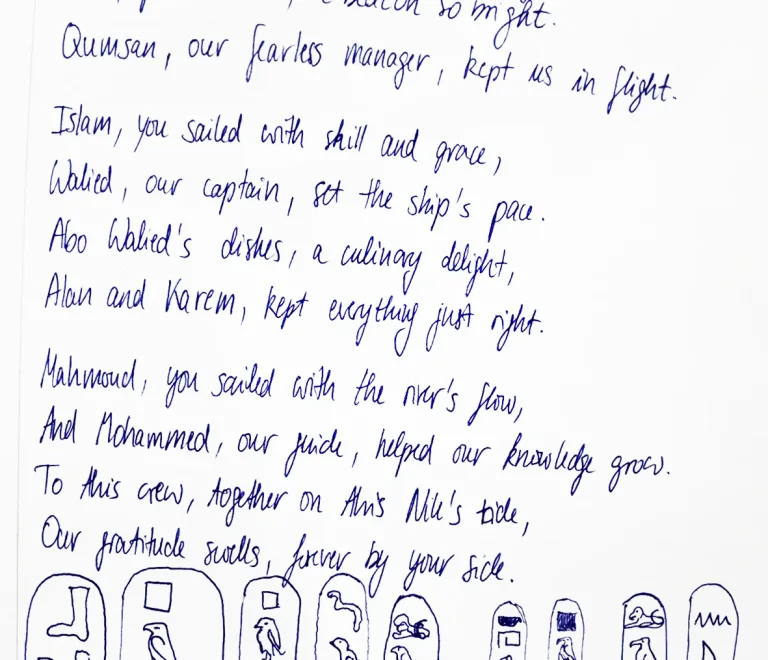 beacon so bright.
Qumsan, our fearless manager, kept us in flight.
Islam, you sailed with skill and grace,
Walied, our captain, set the ship's pace.
Abo Walied's dishes, a culinary delight,
Alan and Karem, kept everything just right.
Mahmoud, you sailed with the river's flow,
And Mohammed, our guide, helped our knowledge grow.
To this crew, together on this Nile's tide,
Our gratitude swells, forever by your side.